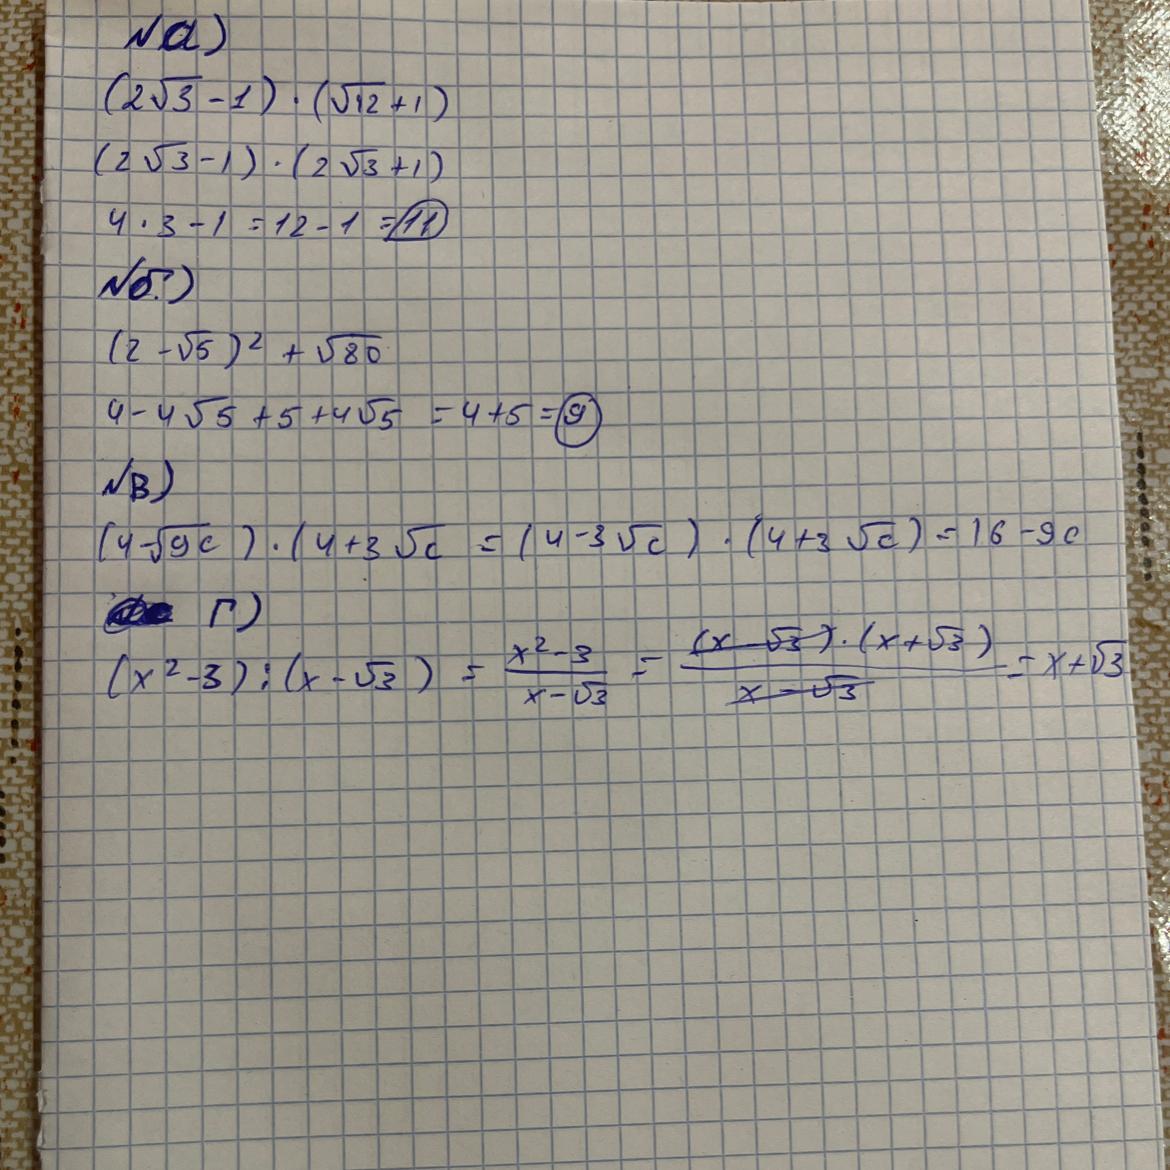 №а)
(2√3-1)·(√12+1)
(2√3-1)·(2√3+1)
4·3-1=12-1=11
№б)
(2-√5)²+√80
4-4√5+5+4√5=4+5=9
№в)
(4-√9c)·(4+3√c=(4-3√c)·(4+3√c)=16-9c
г)
(x²-3):(x-√3)=\frac{x²-3}{x-√3}=\frac{(x-√3)·(x+√3)}{x-√3}=x+√3